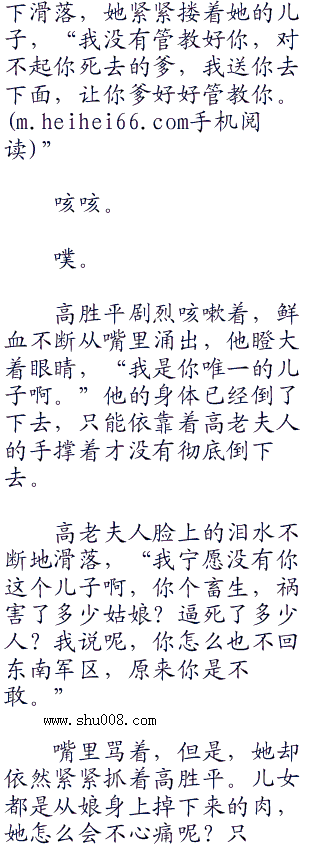 下滑落，她紧紧搂着她的儿
子，“我没有管教好你，对
不起你死去的爹，我送你去
下面，让你爹好好管教你。
(m.heihei66.com手机阅
读)”
咳咳。
噗。
高胜平剧烈咳嗽着，鲜
血不断从嘴里涌出，他瞪大
着眼睛，“我是你唯一的儿
子啊。”他的身体已经倒了
下去，只能依靠着高老夫人
的手撑着才没有彻底倒下
去。
高老夫人脸上的泪水不
断地滑落，“我宁愿没有你
这个儿子啊，你个畜生，祸
害了多少姑娘？逼死了多少
人？我说呢，你怎么也不回
东南军区，原来你是不
敢。”
www.shu008.com
嘴里骂着，但是，她却
依然紧紧抓着高胜平。儿女
都是从娘身上掉下来的肉，
她怎么会不心痛呢？只